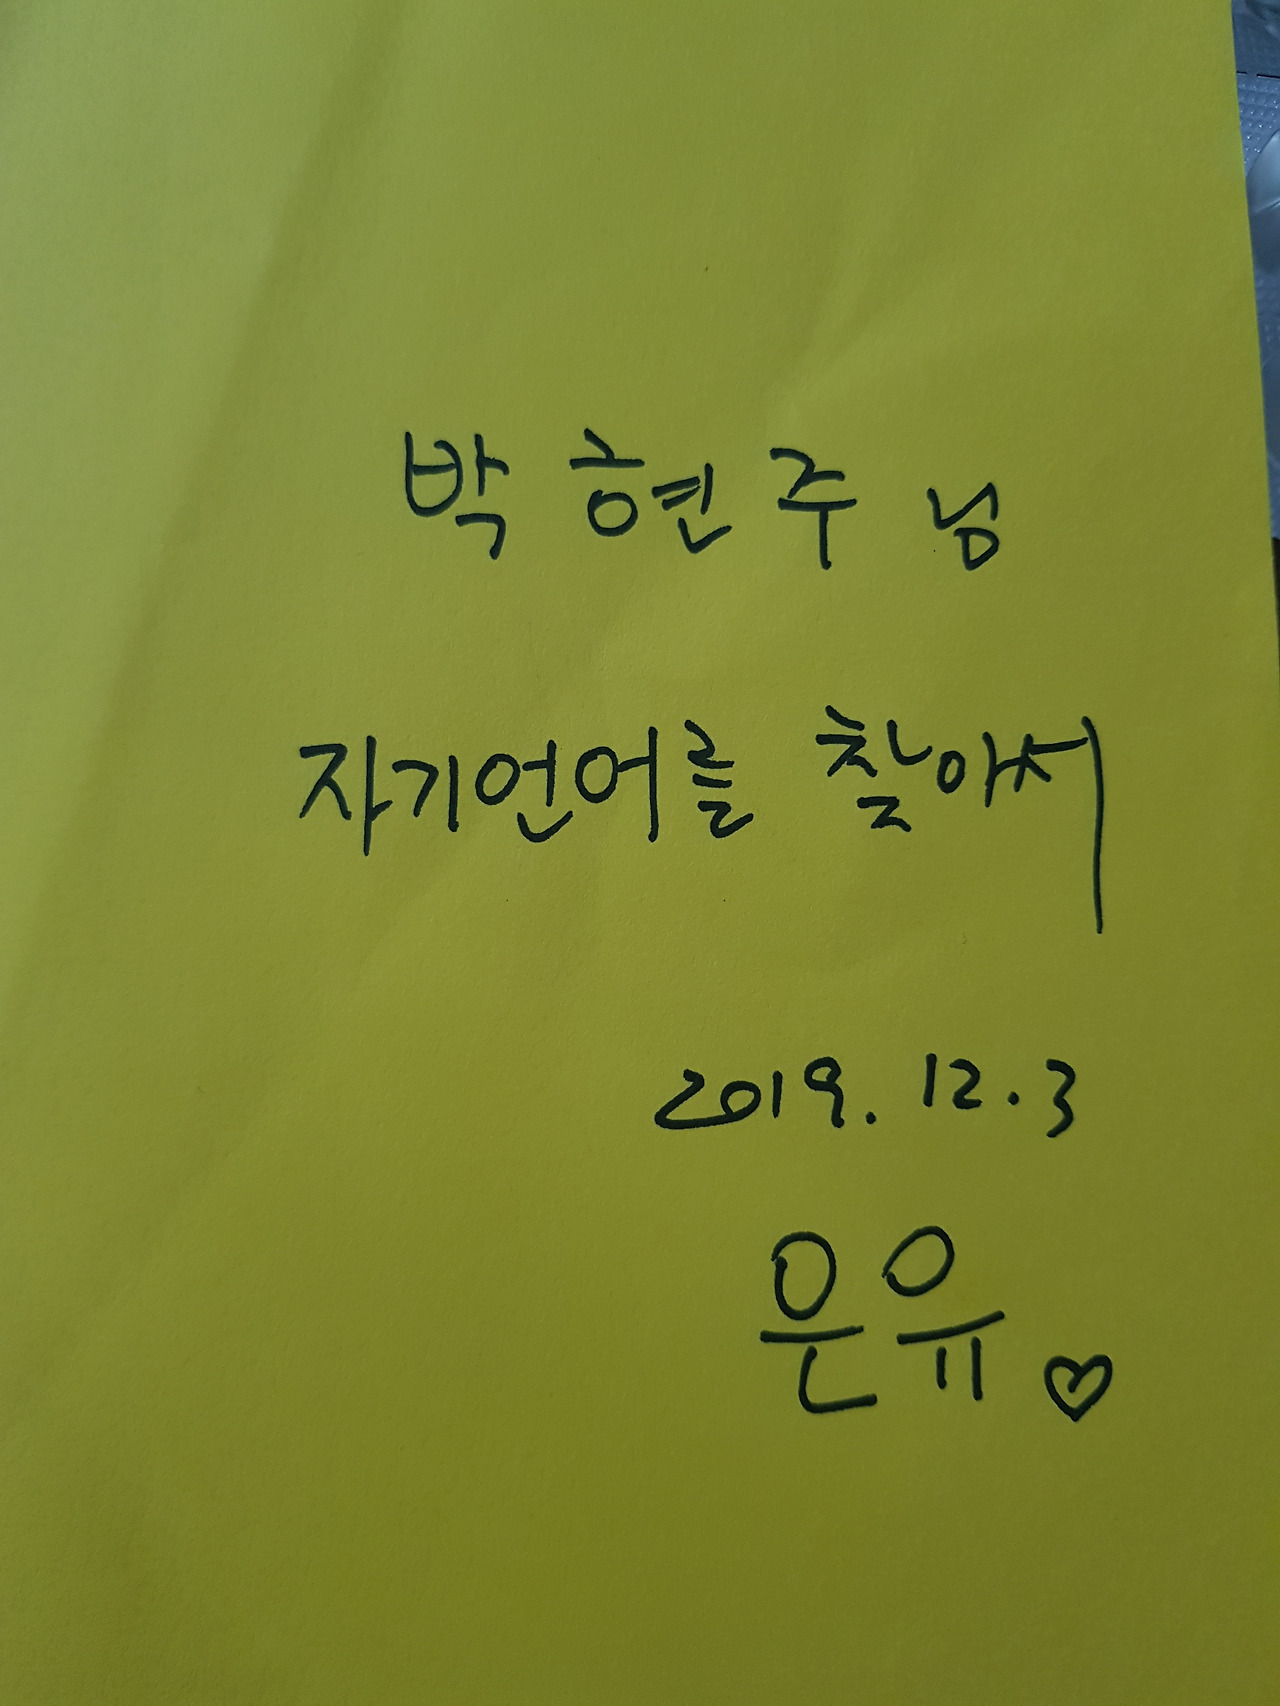 박현주 님
자기언어를 찾아서
2019. 12. 3
은유♡